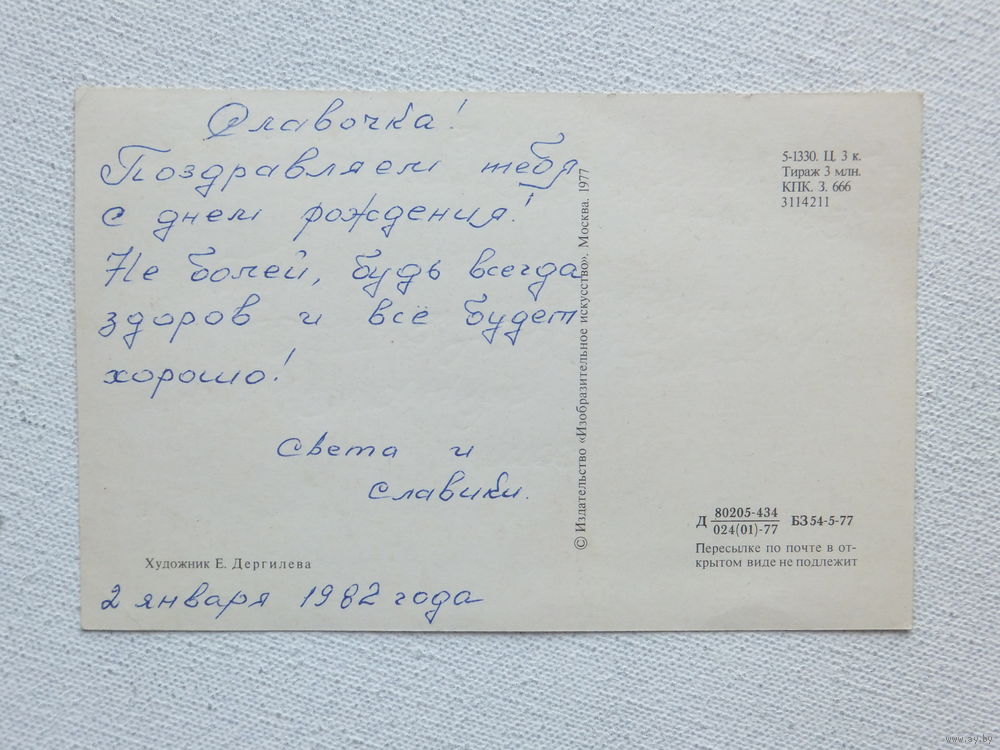 Славочка!
Поздравляем тебя
с днем рождения!
Не болей, будь всегда
здоров и всё будет
хорошо!
Света и
Славики.
Художник Е. Дергилева
2 января 1982 года
© Издательство «Изобразительное искусство». Москва. 1977
5-1330. Ц. 3 к.
Тираж 3 млн.
КПК. З. 666
3114211
Д 80205-434 БЗ 54-5-77
024(01)-77
Пересылке по почте в от-
крытом виде не подлежит
www.ay.by